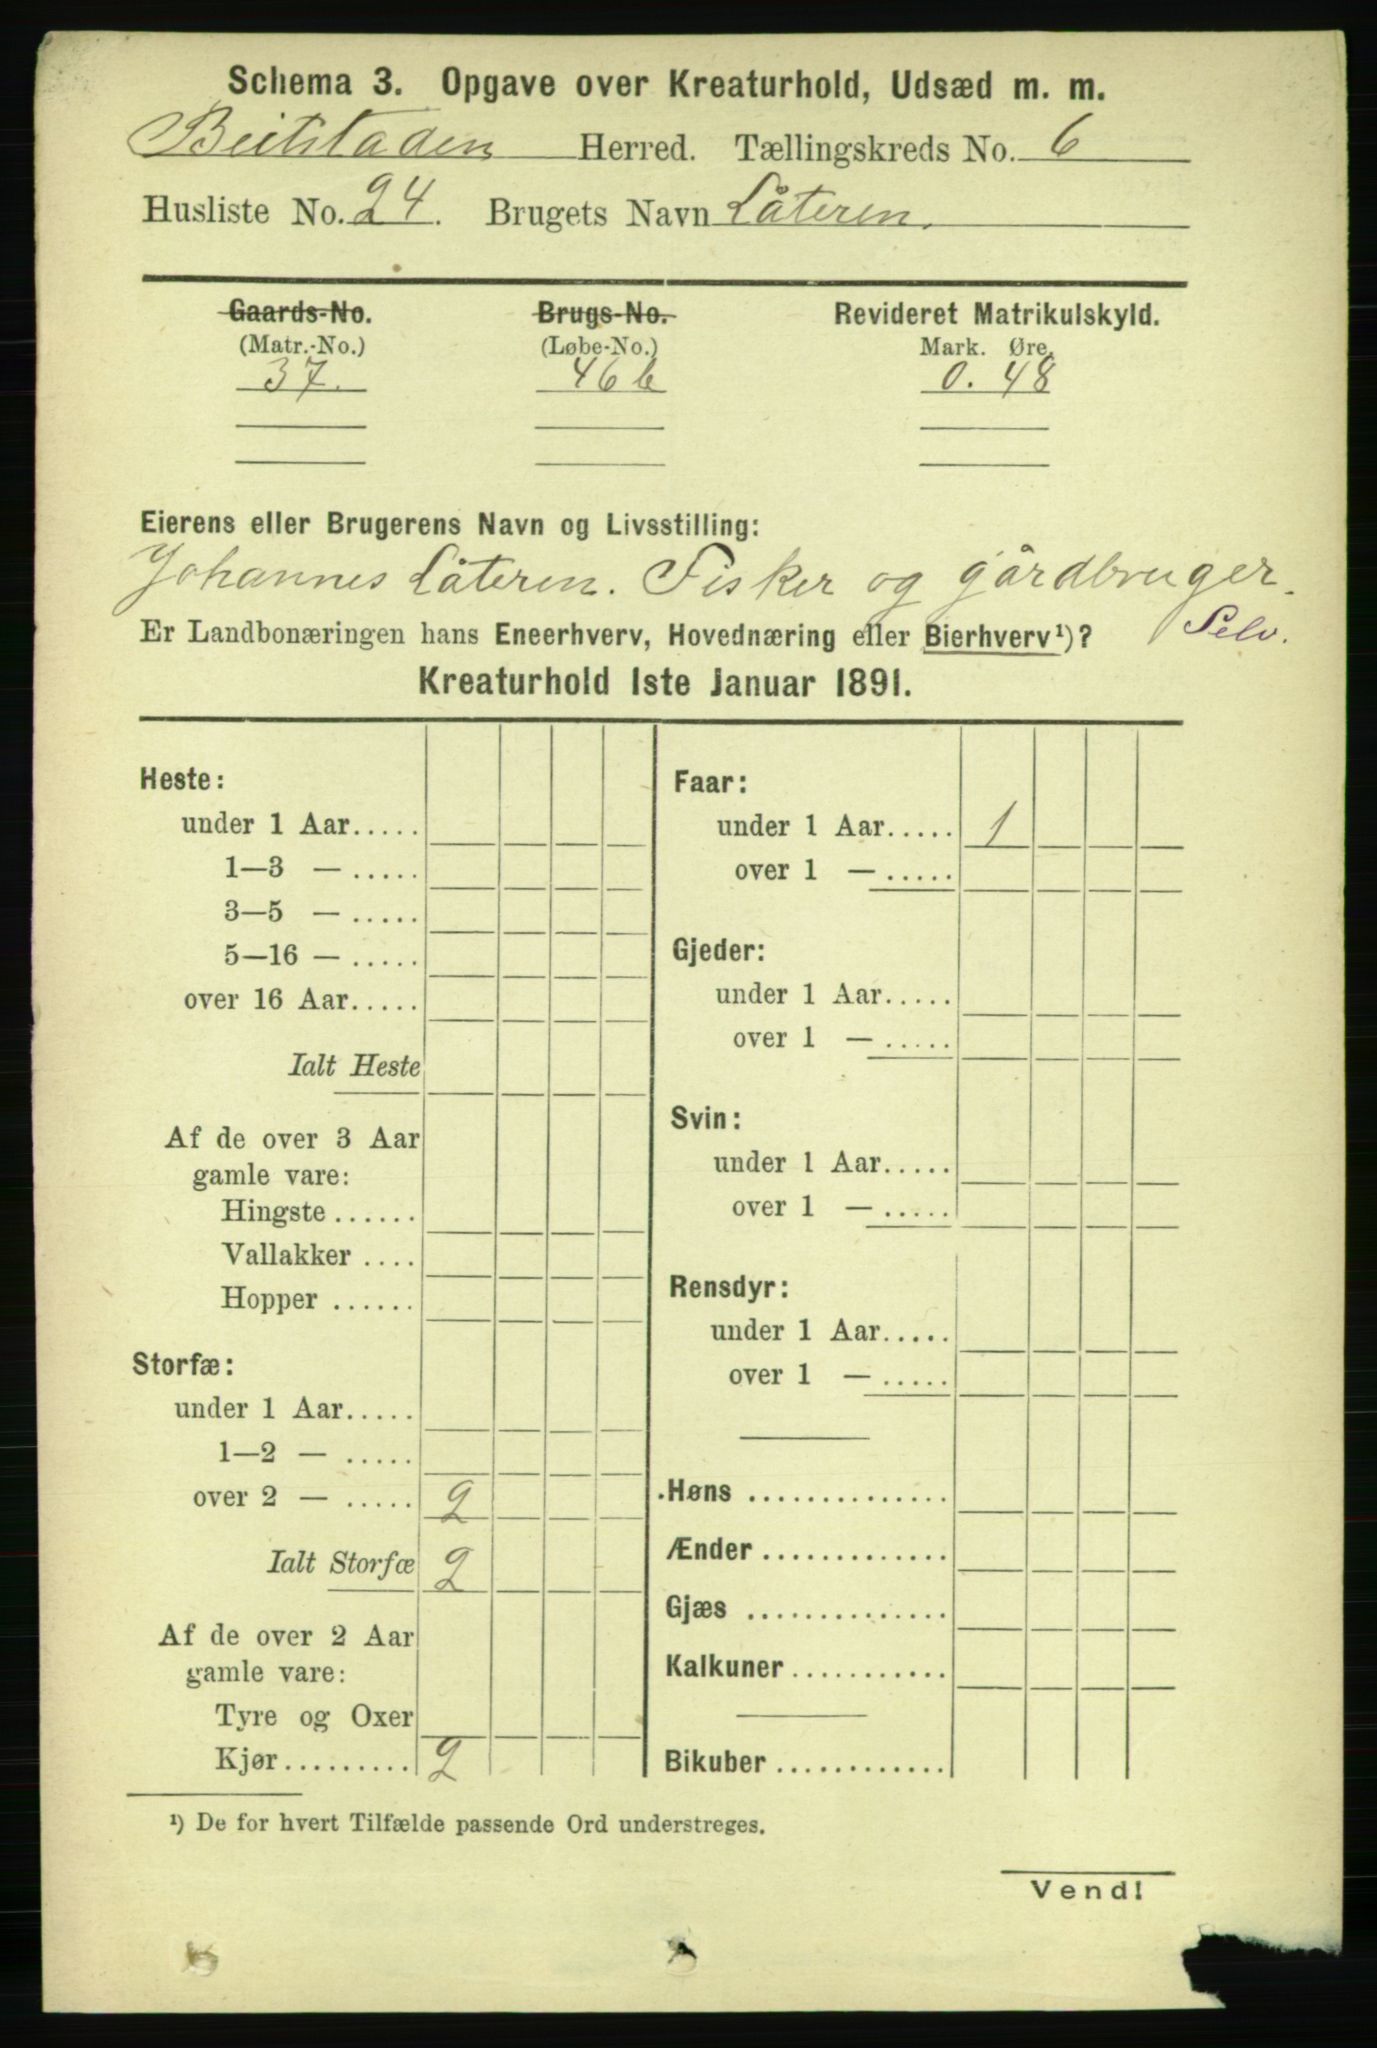 Schema 3. Opgave over Kreaturhold, Udsæd m. m.
Beitstaden Herred. Tællingskreds No. 6
Husliste No. 24. Brugets Navn Låteren.
Gaards-No. Brugs-No. Revideret Matrikulskyld.
(Matr.-No.) (Løbe-No.) Mark. Øre.
37. 46 b 0. 48
Eierens eller Brugerens Navn og Livsstilling:
Johannes Låteren. Fisker og gårdbruger.
Er Landbonæringen hans Eneerhverv, Hovednæring eller Bierhverv¹)? Selv.
Kreaturhold 1ste Januar 1891.
Heste:
under 1 Aar.....
1—3 — .....
3—5 — .....
5—16 — .....
over 16 Aar.....
Ialt Heste
Af de over 3 Aar
gamle vare:
Hingste ......
Vallakker ....
Hopper ......
Storfæ:
under 1 Aar.....
1—2 — .....
over 2 — ..... 2
Ialt Storfæ 2
Af de over 2 Aar
gamle vare:
Tyre og Oxer
Kjør......... 2
Faar:
under 1 Aar..... 1
over 1 — .....
Gjeder:
under 1 Aar.....
over 1 — .....
Svin:
under 1 Aar.....
over 1 — .....
Rensdyr:
under 1 Aar.....
over 1 — .....
Høns ..............
Ænder .............
Gjæs ..............
Kalkuner ...........
Bikuber ............
¹) De for hvert Tilfælde passende Ord understreges.
Vend!